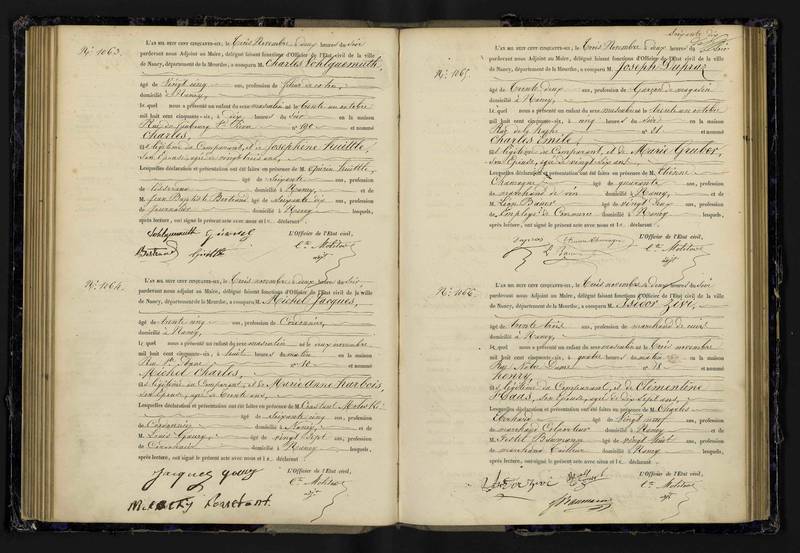 Nº. 1063.
L'AN MIL HUIT CENT CINQUANTE-SIX, le Trois Novembre à deux heures du Soir
pardevant nous Adjoint au Maire, délégué faisant fonctions d'Officier de l'Etat civil de la ville
de Nancy, département de la Meurthe, a comparu M. Charles Schlquemuth,
âgé de Vingt cinq ans, profession de fileur de coton,
domicilié à Nancy,
Lequel nous a présenté un enfant du sexe masculin né le Trente un octobre
mil huit cent cinquante-six, à dix heures du Soir en la maison
Rue du faubourg St Pierre nº 190 et nommé
Charles,
fils légitime du Comparant, et de Josephine Guittle,
Son Epouse, agée de vingt trois ans,
Lesquelles déclaration et présentation ont été faites en présence de M. Guérin Guittle,
âgé de Soixante ans, profession
de tisserand domicilié à Nancy, et de
M. Jean Baptiste Bertrand âgé de Soixante dix ans, profession
de Journalier domicilié à Nancy lesquels,
après lecture, ont signé le présent acte avec nous et le déclarant
L'Officier de l'Etat civil,
Bertrand
Nº. 1064.
L'AN MIL HUIT CENT CINQUANTE-SIX, le Trois novembre à deux heures du Soir
pardevant nous Adjoint au Maire, délégué faisant fonctions d'Officier de l'Etat civil de la ville
de Nancy, département de la Meurthe, a comparu M. Michel Jacques,
âgé de trente cinq ans, profession de Cordonnier,
domicilié à Nancy,
Lequel nous a présenté un enfant du sexe masculin né le deux novembre
mil huit cent cinquante-six, à huit heures du matin en la maison
Rue Ste Anne nº 10 et nommé
Michel Charles,
fils légitime du Comparant, et de Marie Anne Harbois,
Son Epouse, agée de Trente ans,
Lesquelles déclaration et présentation ont été faites en présence de M. Constant
âgé de Soixante cinq ans, profession
de Cordonnier domicilié à Nancy et de
M. Louis Goury âgé de vingt sept ans, profession
de Cordonnier domicilié à Nancy lesquels,
après lecture, ont signé le présent acte avec nous et le déclarant
L'Officier de l'Etat civil,
Jacques goury
Soixante dix
Nº. 1065.
L'AN MIL HUIT CENT CINQUANTE-SIX, le Trois Novembre à deux heures du Soir
pardevant nous Adjoint au Maire, délégué faisant fonctions d'Officier de l'Etat civil de la ville
de Nancy, département de la Meurthe, a comparu M. Joseph Dupraz
âgé de Trente deux ans, profession de Garçon de magasin
domicilié à Nancy,
Lequel nous a présenté un enfant du sexe masculin né le Trente un octobre
mil huit cent cinquante-six, à cinq heures du Soir en la maison
Rue de la nº 21 et nommé
Charles Emile,
fils légitime du Comparant, et de Marie Gruber,
Son Epouse, agée de vingt six ans
Lesquelles déclaration et présentation ont été faites en présence de M. Etienne
Chamagne âgé de quarante ans, profession
de marchand de vin domicilié à Nancy, et de
M. Léon âgé de vingt deux ans, profession
de Employé de Commerce domicilié à Nancy lesquels,
après lecture, ont signé le présent acte avec nous et le déclarant
L'Officier de l'Etat civil,
Nº. 1066.
L'AN MIL HUIT CENT CINQUANTE-SIX, le Trois novembre à deux heures du Soir
pardevant nous Adjoint au Maire, délégué faisant fonctions d'Officier de l'Etat civil de la ville
de Nancy, département de la Meurthe, a comparu M. Isidor Zivi,
âgé de Trente trois ans, profession de marchand de cuirs
domicilié à Nancy,
Lequel nous a présenté un enfant du sexe masculin né le Trois novembre
mil huit cent cinquante-six, à quatre heures du matin en la maison
Rue Notre Dame nº 78 et nommé
henry,
fils légitime du Comparant, et de Clémentine
Haas, Son Epouse, agée de dix Sept ans,
Lesquelles déclaration et présentation ont été faites en présence de M. Charles
âgé de Vingt neuf ans, profession
de marchand domicilié à Nancy et de
M. Baumann âgé de vingt huit ans, profession
de marchand Tailleur domicilié à Nancy lesquels,
après lecture, ont signé le présent acte avec nous et le déclarant
L'Officier de l'Etat civil,